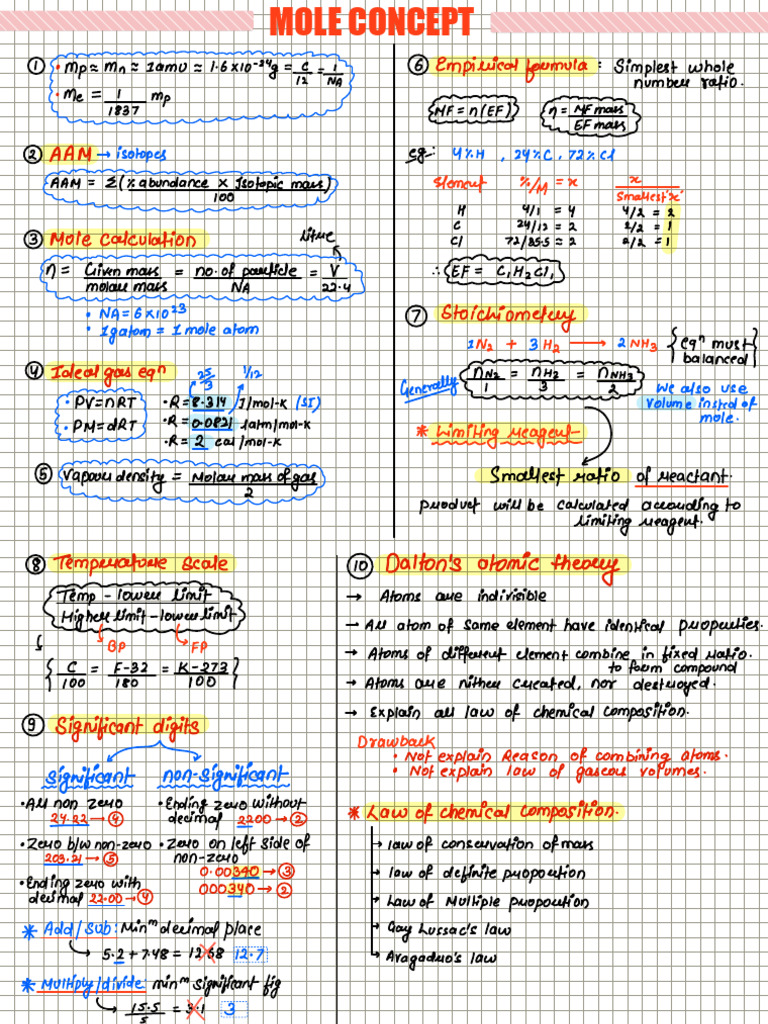 MOLE CONCEPT
① • mp ≈ mn ≈ 1amu ≈ 1.6×10⁻²⁴g = C/12 = 1/NA
• me = 1/1837 mp
② AAM → isotopes
AAM = Σ(% abundance × Isotopic mass)/100
③ Mole Calculation
litre
n = Given mass/molar mass = no. of particle/NA = V/22.4
• NA = 6×10²³
• 1gatom = 1 mole atom
④ Ideal gas eqn
25/3 1/12
• PV=nRT
• PM=dRT
• R = 8.314 J/mol-K (SI)
• R = 0.0821 latm/mol-K
• R = 2 cal/mol-K
⑤ Vapour density = Molar mass of gas/2
⑥ Empirical formula : Simplest whole
number ratio.
MF = n(EF)
n = MF mass/EF mass
eg:- 4%H , 24%C , 72%Cl
Element %/M = x x/Smallest 'x'
H 4/1 = 4 4/2 = 2
C 24/12 = 2 2/2 = 1
Cl 72/35.5 = 2 2/2 = 1
∴ EF = C₁H₂Cl₁
⑦ Stoichiometry
1N₂ + 3H₂ → 2NH₃ {eqⁿ must
balanced}
Generally nN₂/1 = nH₂/3 = nNH₃/2
We also use
Volume insted of
mole.
* Limiting reagent
Smallest ratio of reactant
product will be calculated according to
limiting reagent.
⑧ Temperature Scale
Temp - lower limit/Higher limit - lower limit
BP FP
{C/100 = F-32/180 = K-273/100}
⑨ Significant digits
significant
• All non zero
24.22 → ④
• Zero b/w non-zero
203.21 → ⑤
• Ending zero with
decimal 22.00 → ④
non-significant
• Ending zero without
decimal 2200 → ②
• Zero on left side of
non-zero
0.00340 → ③
000340 → ②
* Add/Sub: Minᵐ decimal place
5.2 + 7.48 = 12.68 12.7
* Multiply/divide: minᵐ significant fig
15.5/5 = 3.1 3
⑩ Dalton's atomic theory
→ Atoms are indivisible
→ All atom of same element have identical properties.
→ Atoms of different element combine in fixed ratio.
to form compound
→ Atoms are nither created, nor destroyed.
→ Explain all law of chemical composition.
Drawback
• Not explain Reason of combining atoms.
• Not explain law of gaseous volumes.
* Law of chemical composition.
→ law of conservation of mass
→ law of definite proportion
→ Law of Multiple proportion
→ Gay Lussac's law
→ Avagadro's law